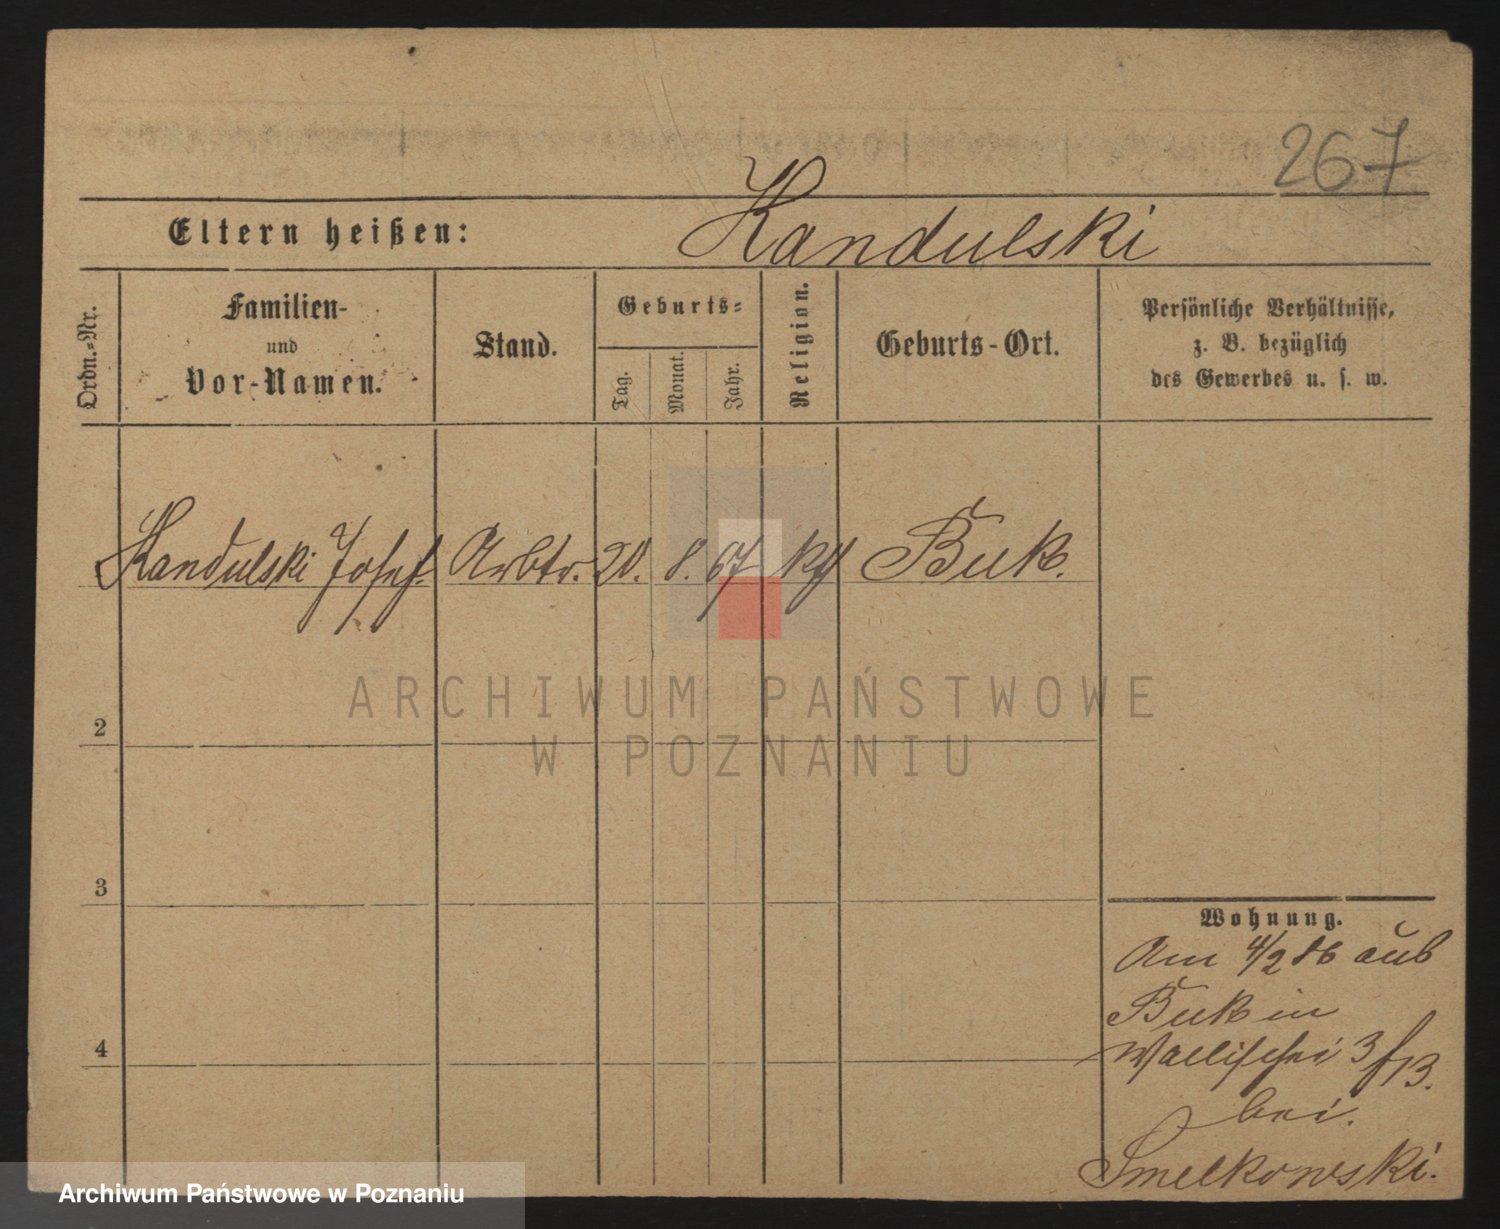 267
Eltern heißen: Kandulski
Ordn.-Nr.
Familien-
und
Vor-Namen.
Stand.
Geburts-
Tag.
Monat.
Jahr.
Religion.
Geburts-Ort.
Persönliche Verhältnisse,
z. B. bezüglich
des Gewerbes u. s. w.
Kandulski Josef. Arbtr. 20. 8. 67 kth Buk.
ARCHIWUM PAŃSTWOWE
W POZNANIU
2
3
4
Wohnung.
Am 4/2 86 aus
Buk in
Wallischei 3
bei.
Smelkowski.
Archiwum Państwowe w Poznaniu